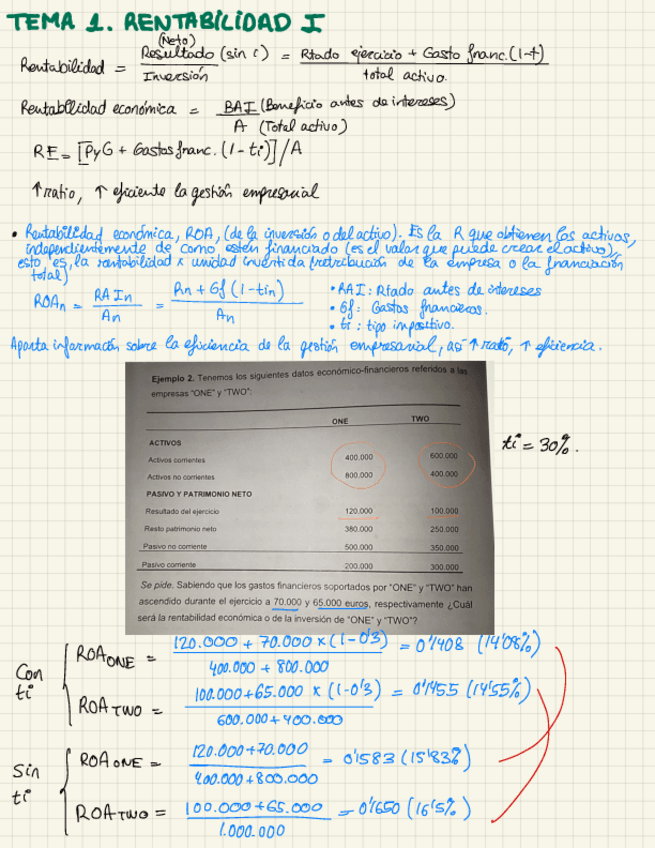 TEMA 1. RENTABILIDAD I
(Neto)
Rentabilidad = Resultado (sin i) / Inversión = Rtado ejercicio + Gasto financ. (1-t) / total activo.
Rentabilidad económica = BAI (Beneficio antes de intereses) / A (Total activo)
RE = [PyG + Gastos franc. (1-ti)]/A
↑ratio, ↑ eficiente la gestión empresarial
• Rentabilidad económica, ROA, (de la inversión o del activo). Es la R que obtienen los activos,
independientemente de como estén financiado (es el valor que puede crear el activo),
esto es, la rentabilidad x unidad invertida (retribución de la empresa o la financiación
total)
ROAn = RAIn / An = Rn + Gf (1-tin) / An
• RAI: Rtado antes de intereses
• Gf: Gastos financieros.
• ti: tipo impositivo.
Aporta información sobre la eficiencia de la gestión empresarial, así ↑ ratio, ↑ eficiencia.
Ejemplo 2. Tenemos los siguientes datos económico-financieros referidos a las
empresas "ONE" y "TWO":
ONE TWO
ACTIVOS
Activos corrientes 400.000 600.000
Activos no corrientes 800.000 400.000
PASIVO Y PATRIMONIO NETO
Resultado del ejercicio 120.000 100.000
Resto patrimonio neto 380.000 250.000
Pasivo no corriente 500.000 350.000
Pasivo corriente 200.000 300.000
ti = 30%.
Se pide. Sabiendo que los gastos financieros soportados por "ONE" y "TWO" han
ascendido durante el ejercicio a 70.000 y 65.000 euros, respectivamente ¿Cuál
será la rentabilidad económica o de la inversión de "ONE" y "TWO"?
Con ti
ROA ONE = 120.000 + 70.000 x (1-0'3) / 400.000 + 800.000 = 0'1408 (14'08%)
ROA TWO = 100.000+65.000 x (1-0'3) / 600.000+400.000 = 0'1455 (14'55%)
Sin ti
ROA ONE = 120.000+70.000 / 400.000+800.000 = 0'1583 (15'83%)
ROA TWO = 100.000+65.000 / 1.000.000 = 0'1650 (16'5%)